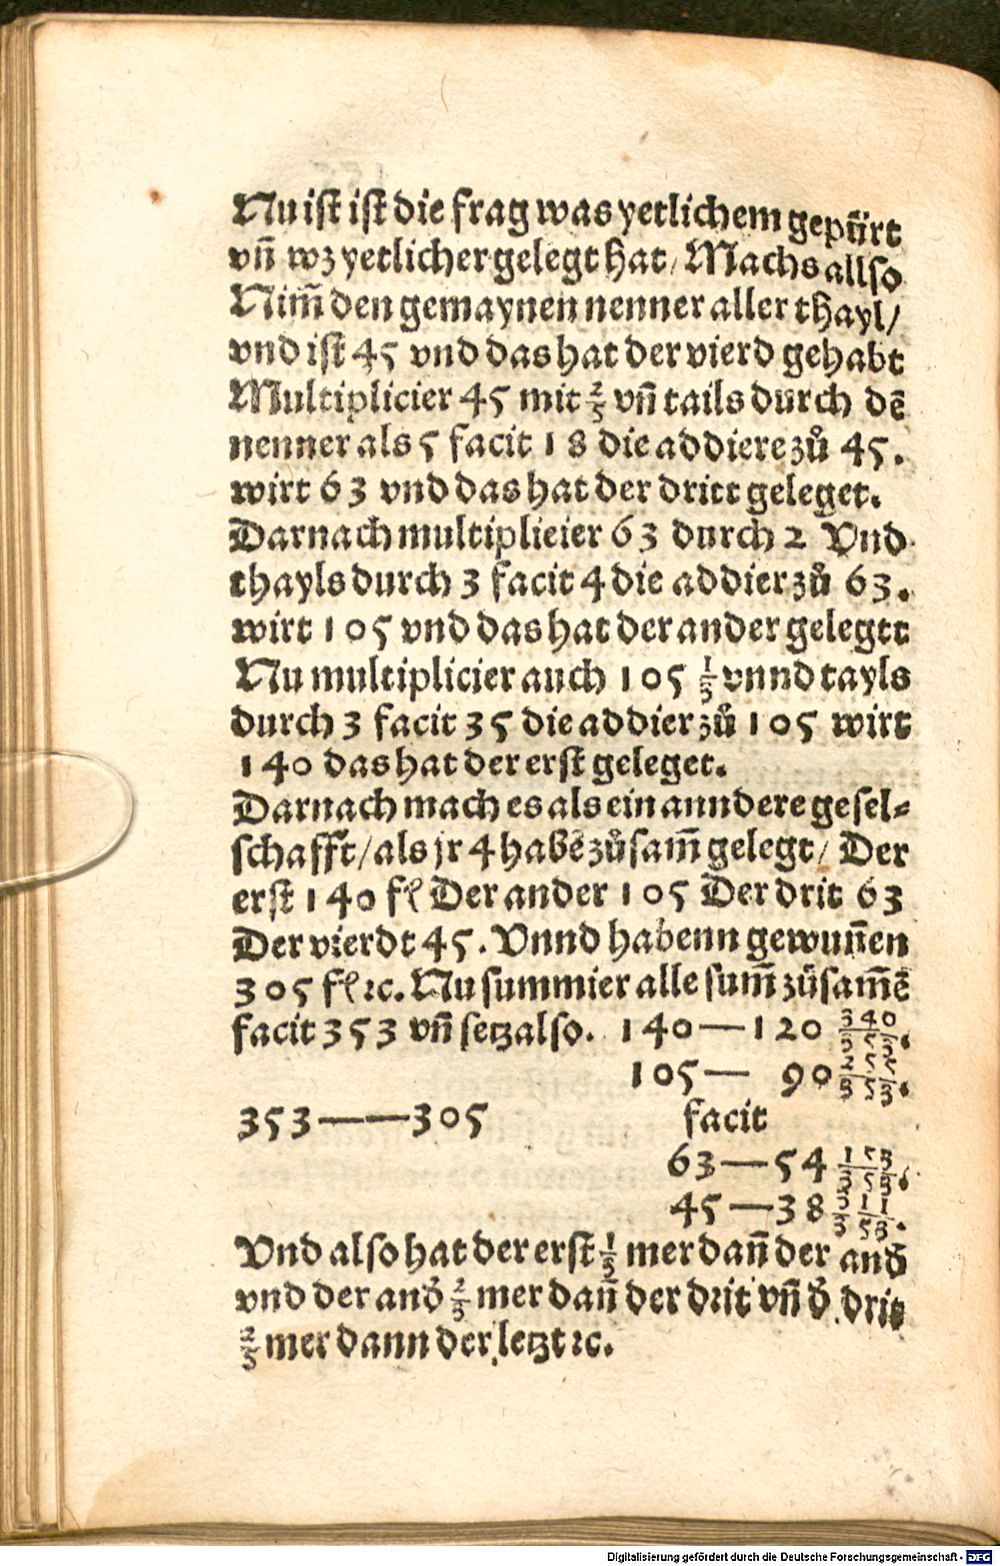 Nu iſt iſt die frag was yetlichem gepuͤrt
vñ wz yetlicher gelegt hat / Machs allſo
Nim̃ den gemaynen nenner aller thayl /
vnd iſt 45 vnd das hat der vierd gehabt
Multiplicier 45 mit 2/5 vñ tails durch dẽ
nenner als 5 facit 18 die addiere zů 45.
wirt 63 vnd das hat der dritt geleget.
Darnach multiplieier 63 durch 2 Vnd
thayls durch 3 facit 4 die addier zů 63.
wirt 105 vnd das hat der ander gelegtt
Nu multiplicier auch 105 1/3 vnnd tayls
durch 3 facit 35 die addier zů 105 wirt
140 das hat der erſt geleget.
Darnach mach es als ein anndere geſel⸗
ſchafft / als jr 4 habẽ zůſam̃ gelegt / Der
erſt 140 fl Der ander 105 Der drit 63
Der vierdt 45. Vnnd habenn gewun̄en
305 fl ꝛc. Nu summier alle ſum̃ zůſam̃ẽ
facit 353 vñ ſetz alſo. 140 — 120 340/353.
105 — 90 255/353.
353 —— 305 facit
63 — 54 153/353.
45 — 38 311/353.
Vnd alſo hat der erſt 1/3 mer dañ der and̓
vnd der and̓ 2/3 mer dañ der drit vñ d̓ drit
2/5 mer dann der letzt ꝛc.
Digitalisierung gefördert durch die Deutsche Forschungsgemeinschaft - DFG